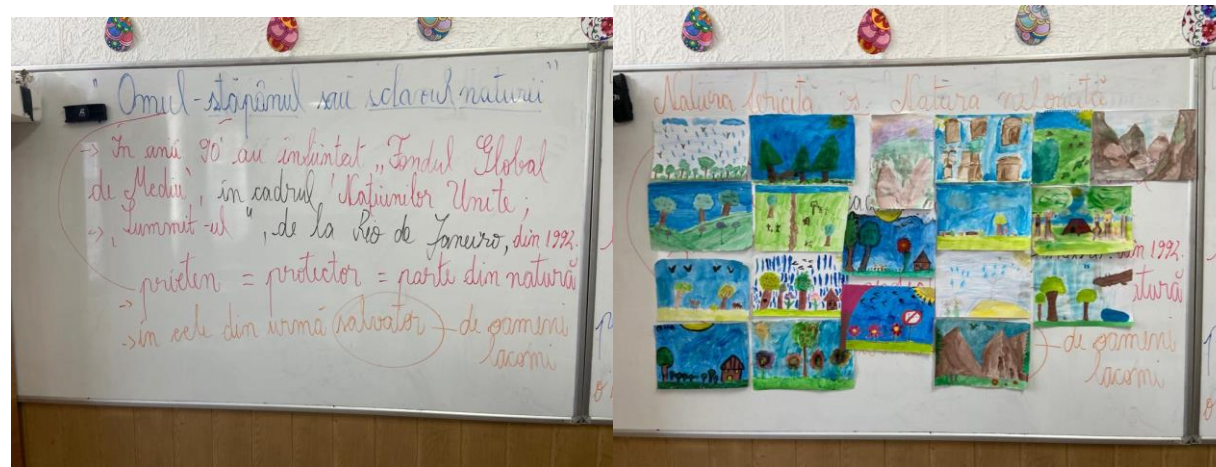 " Omul - stăpânul sau sclavul naturii "
-> În anii 90' au înfiintat „Fondul Global
de Mediu", în cadrul Națiunilor Unite;
-> „Summit-ul", de la Rio de Janeiro, din 1992.
prieten = protector = parte din natură
-> în cele din urmă salvator - de oameni
lacomi
Natura fericită vs. Natura nefericită
din 1992.
tură
de oameni
lacomi